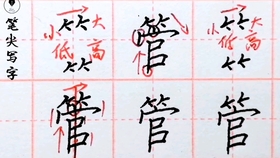 笔尖写字
小 大
低 高
管
小 大
低 高
管 管 管